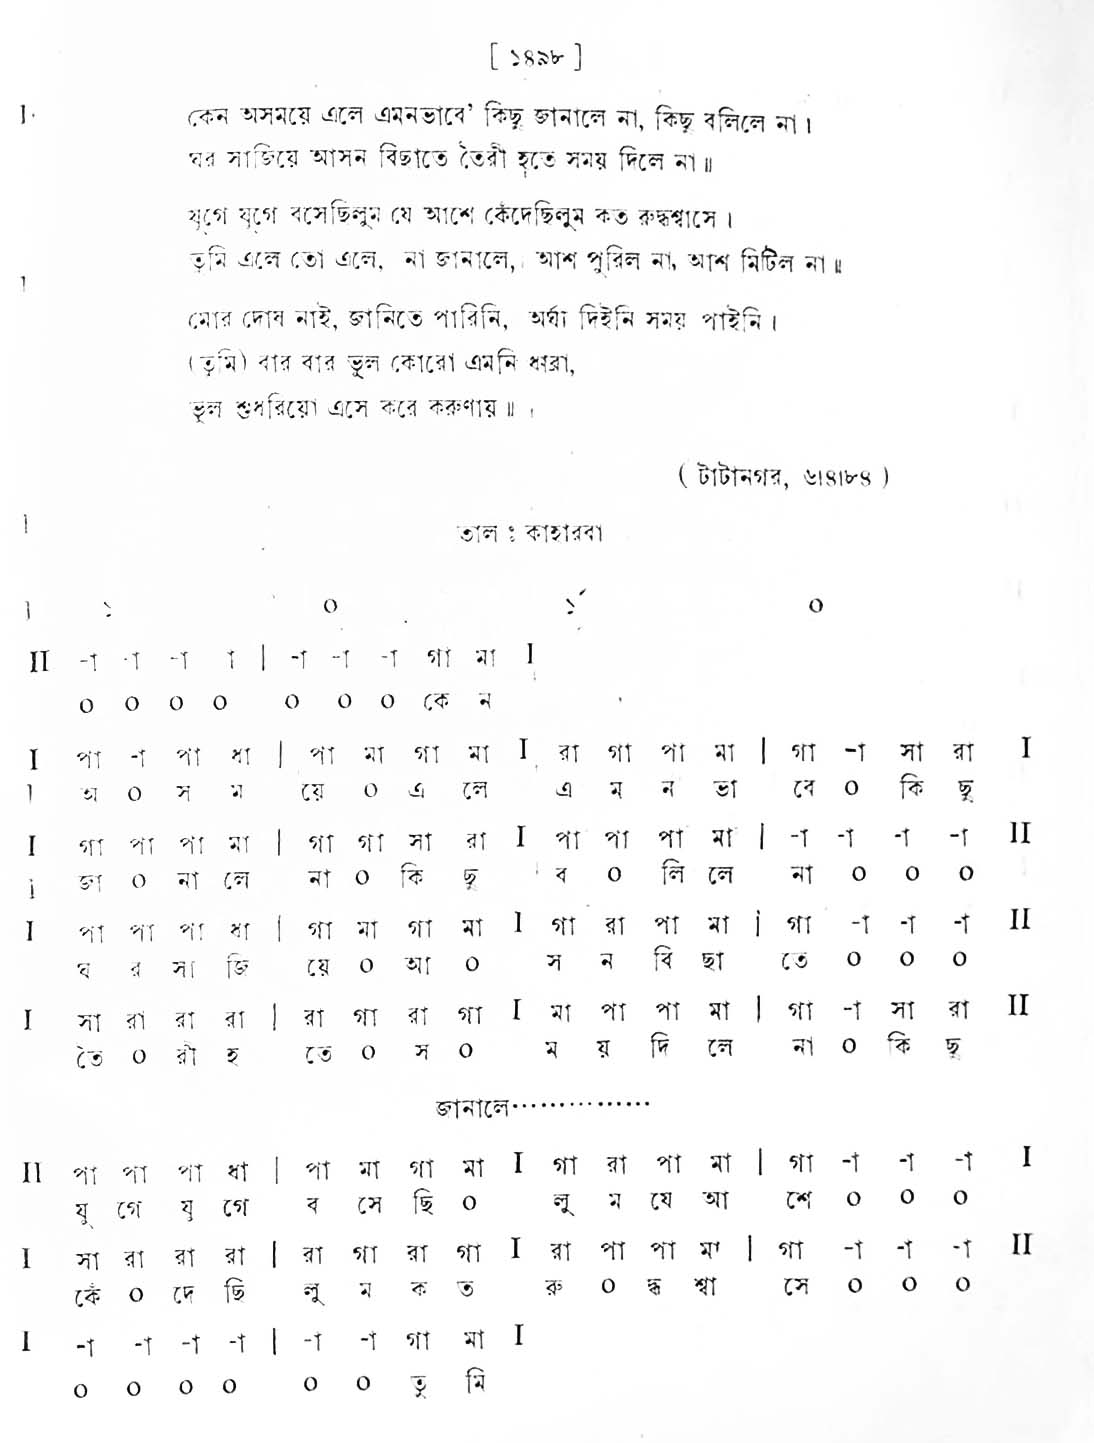 [ ১৪৯৮ ]
কেন অসময়ে এলে এমনভাবে' কিছু জানালে না, কিছু বলিলে না।
ঘর সাজিয়ে আসন বিছাতে তৈরী হতে সময় দিলে না॥
যুগে যুগে বসেছিলুম যে আশে কেঁদেছিলুম কত রুদ্ধশ্বাসে।
তুমি এলে তো এলে, না জানালে, আশ পুরিল না, আশ মিটিল না॥
মোর দোষ নাই, জানিতে পারিনি, অর্ঘ্য দিইনি সময় পাইনি।
(তুমি) বার বার ভুল কোরো এমনি ধারা,
ভুল শুধরিয়ো এসে করে করুণায়॥
( টাটানগর, ৬।৪।৮৪ )
তাল : কাহারবা
১ ০ ১´ ০
II -া -া -া া | -া -া -া গা মা I
০ ০ ০ ০ ০ ০ ০ কে ন
I পা -া পা ধা | পা মা গা মা I রা গা পা মা | গা -া সা রা I
অ ০ স ম য়ে ০ এ লে এ ম ন ভা বে ০ কি ছু
I গা পা পা মা | গা গা সা রা I পা পা পা মা | -া -া -া -া II
জা ০ না লে না ০ কি ছু ব ০ লি লে না ০ ০ ০
I পা পা পা ধা | গা মা গা মা I গা রা পা মা | গা -া -া -া II
ঘ র সা জি য়ে ০ আ ০ স ন বি ছা তে ০ ০ ০
I সা রা রা রা | রা গা রা গা I মা পা পা মা | গা -া সা রা II
তৈ ০ রী হ তে ০ স ০ ম য় দি লে না ০ কি ছু
জানালে···············
II পা পা পা ধা | পা মা গা মা I গা রা পা মা | গা -া -া -া I
যু গে যু গে ব সে ছি ০ লু ম যে আ শে ০ ০ ০
I সা রা রা রা | রা গা রা গা I রা পা পা মা | গা -া -া -া II
কেঁ ০ দে ছি লু ম ক ত রু ০ দ্ধ শ্বা সে ০ ০ ০
I -া -া -া -া | -া -া গা মা I
০ ০ ০ ০ ০ ০ তু মি